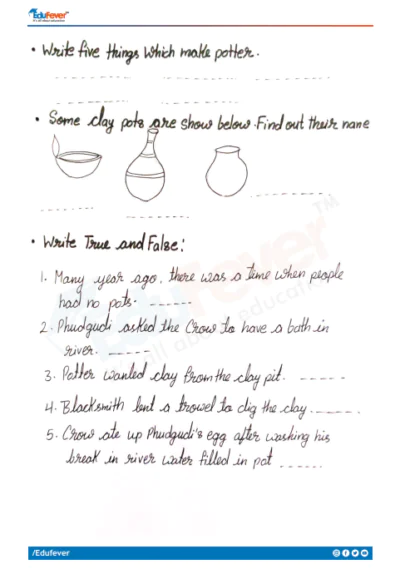 EduFever
It's all about education
• Write five things which make potter.
• Some clay pots are show below. Find out their name
• Write True and False:
1. Many year ago, there was a time when people
had no pots. ------
2. Phudgudi asked the Crow to have a bath in
river. -----
3. Potter wanted clay from the clay pit. -----
4. Blacksmith lent a trowel to dig the clay ------
5. Crow ate up Phudgudi's egg after washing his
break in river water filled in pot -----
/Edufever